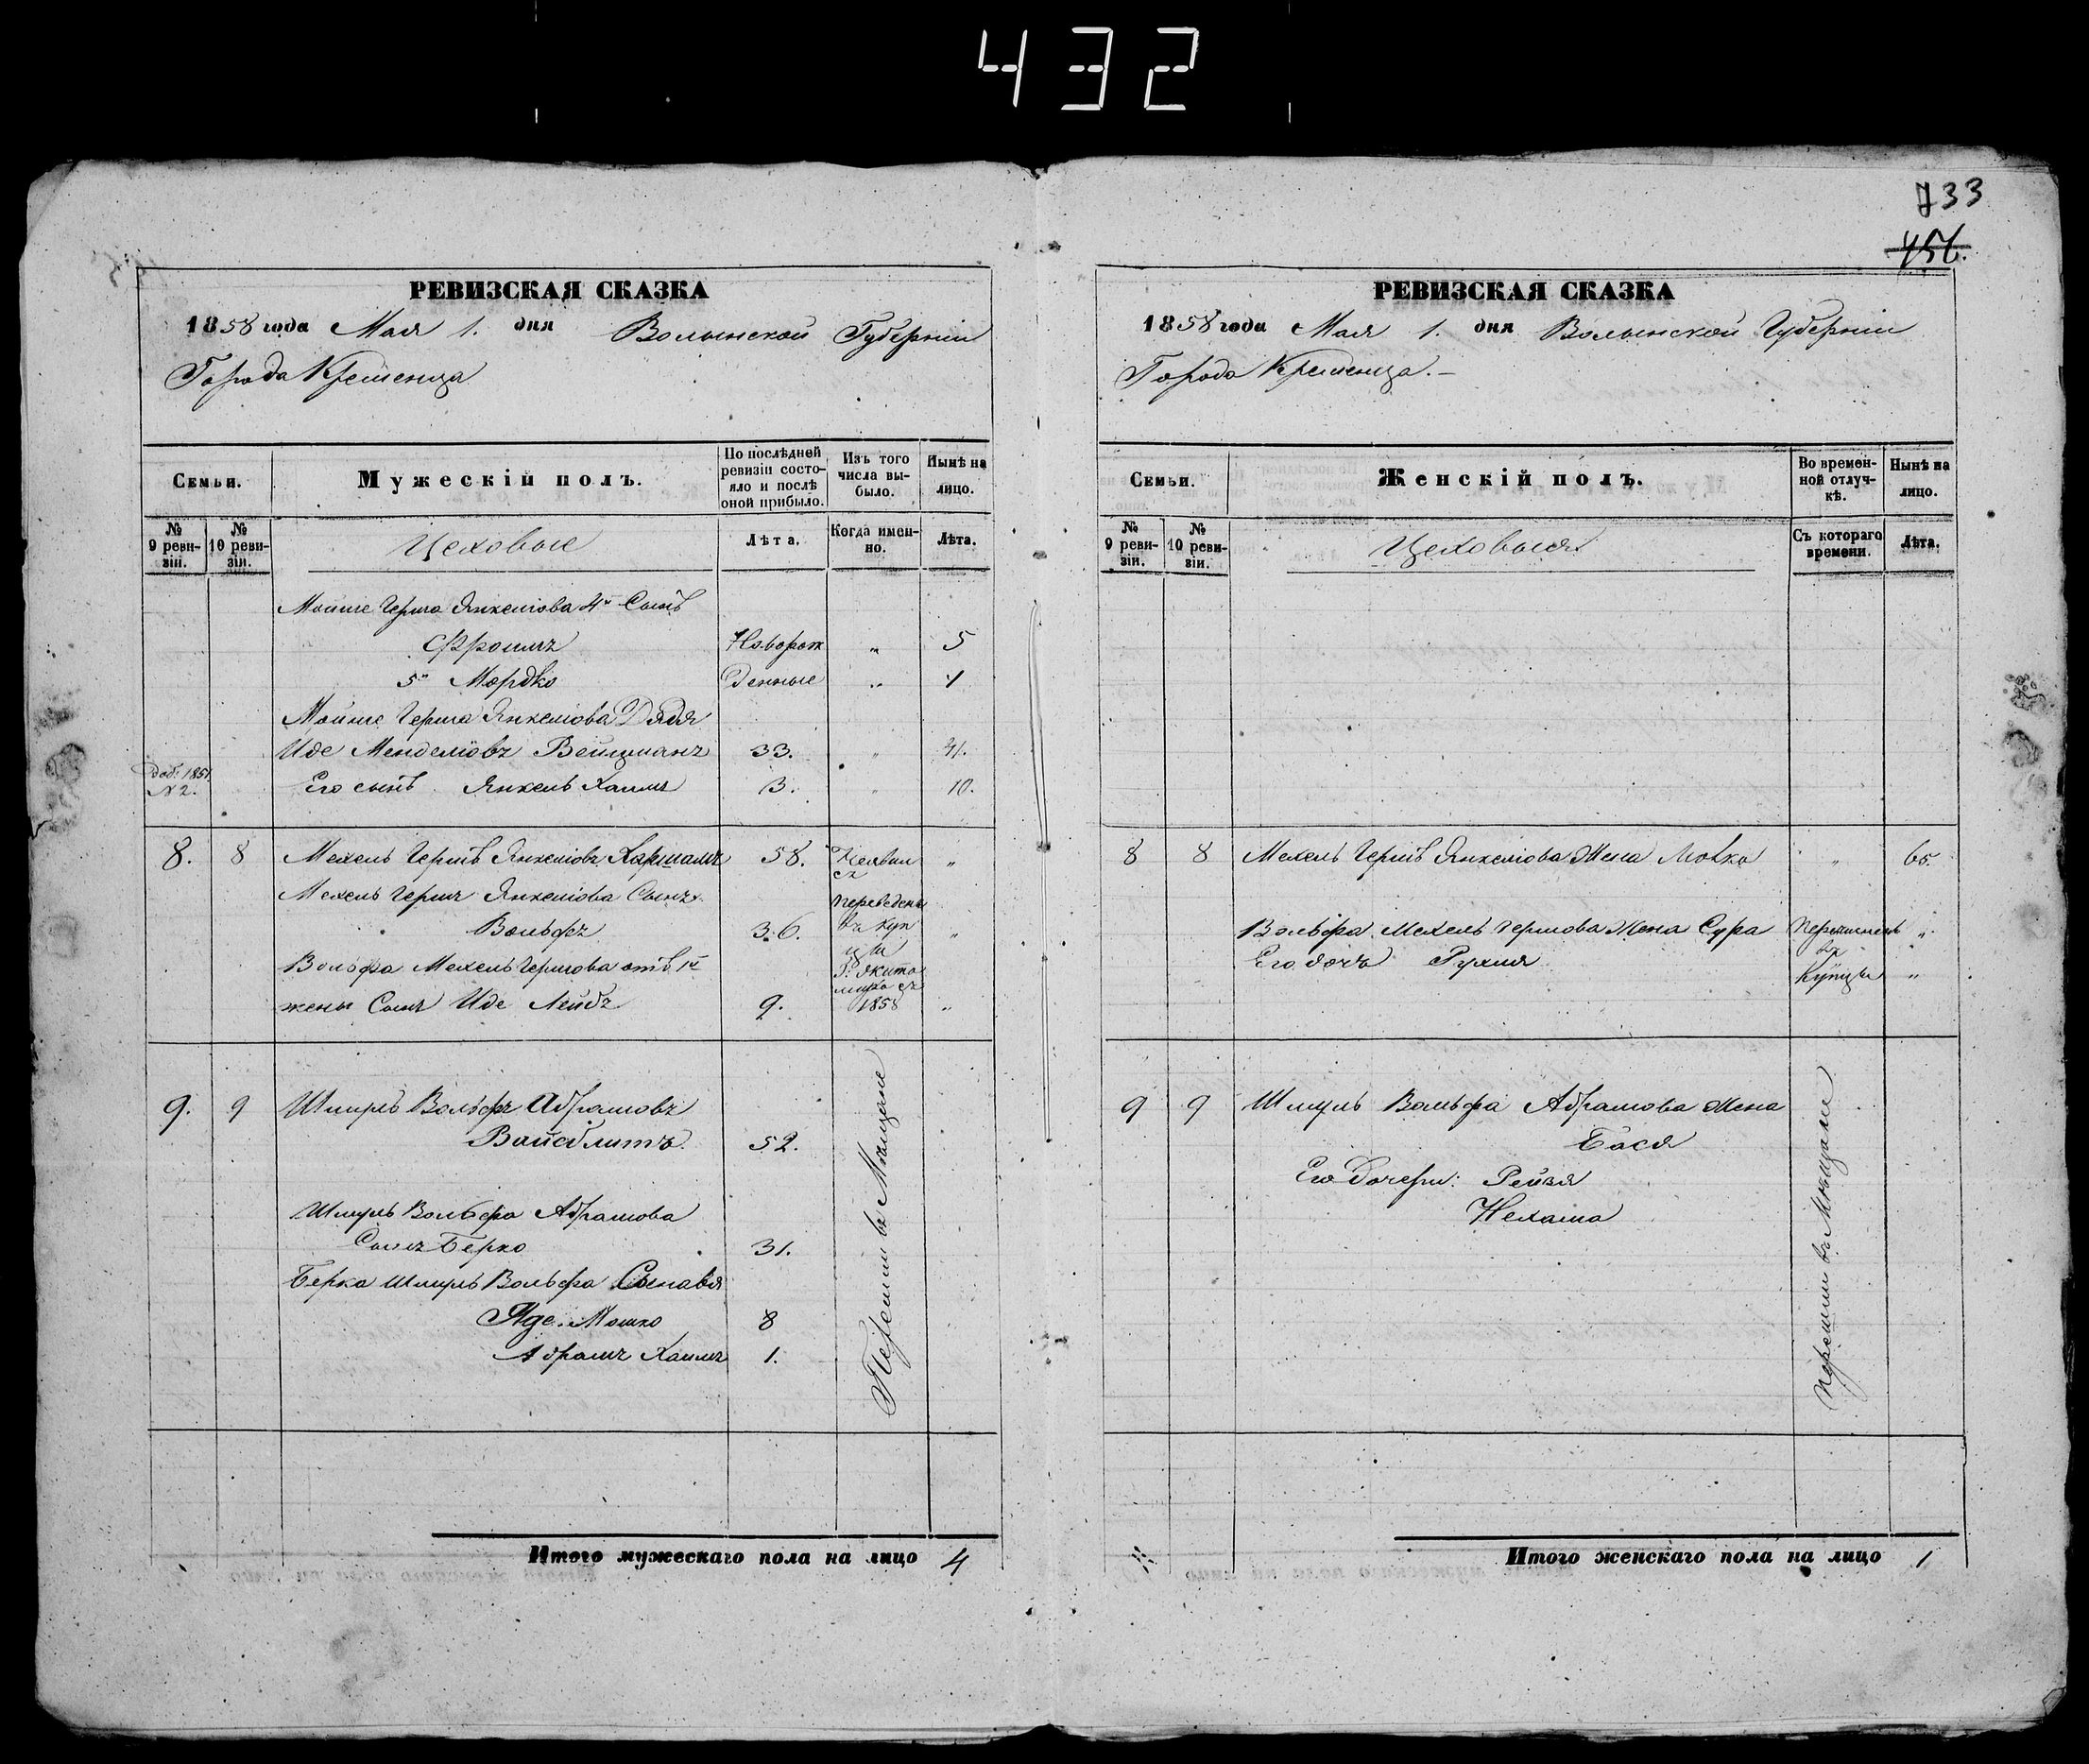 432
733
456.
РЕВИЗСКАЯ СКАЗКА
1858 года Мая 1. дня Волынской Губерніи
Города Кременца
Семьи.
Мужескій полъ.
По послѣдней ревизіи состояло и послѣ оной прибыло.
Изъ того числа выбыло.
Нынѣ на лицо.
№ 9 ревизіи.
№ 10 ревизіи.
Цеховые
Лѣта.
Когда именно.
Лѣта.
Мошке Герша Янкелiова 4й Сынъ
Фроимъ Новорож „ 5
5й Мордко денные „ 1
Герша Янкелiова Дядя
Иде Менделiовъ Вейцманъ 33. „ 41.
Доб: 1851 №2. Его сынъ Янкель Хаимъ 3. „ 10.
8. 8 Мехель Гершъ Янкелiовъ 58. „
Мехель Герша Янкелiова Сынъ
Вольфъ 36. переведенъ въ куп „
Вольфа Мехель Гершова отъ 1й
жены Сынъ Иде Лейбъ 9. 1858 „
9. 9 Шмуль Вольфъ Абрамовъ
Вайсблитъ 52.
Шмуль Вольфа Абрамова
Сынъ Берко 31.
Берка Шмуль Вольфа Сынавья
Мошко 8
Абрамъ Хаимъ 1.
въ Мещане
Итого мужескаго пола на лицо 4
РЕВИЗСКАЯ СКАЗКА
1858 года Мая 1. дня Волынской Губерніи
Города Кременца.
Семьи.
Женскій полъ.
Во временной отлучкѣ.
Нынѣ на лицо.
№ 9 ревизіи.
№ 10 ревизіи.
Цеховыя
Съ котораго времени.
Лѣта.
8 8 Мехель Гершъ Янкелiова Жена „ 65.
Вольфа Мехель Гершова Жена Сура „
Его дочь Рухля въ Купцы „
9 9 Шмуль Вольфа Абрамова Жена
Бася
Его дочери: Рейзя
Нехама
Итого женскаго пола на лицо 1